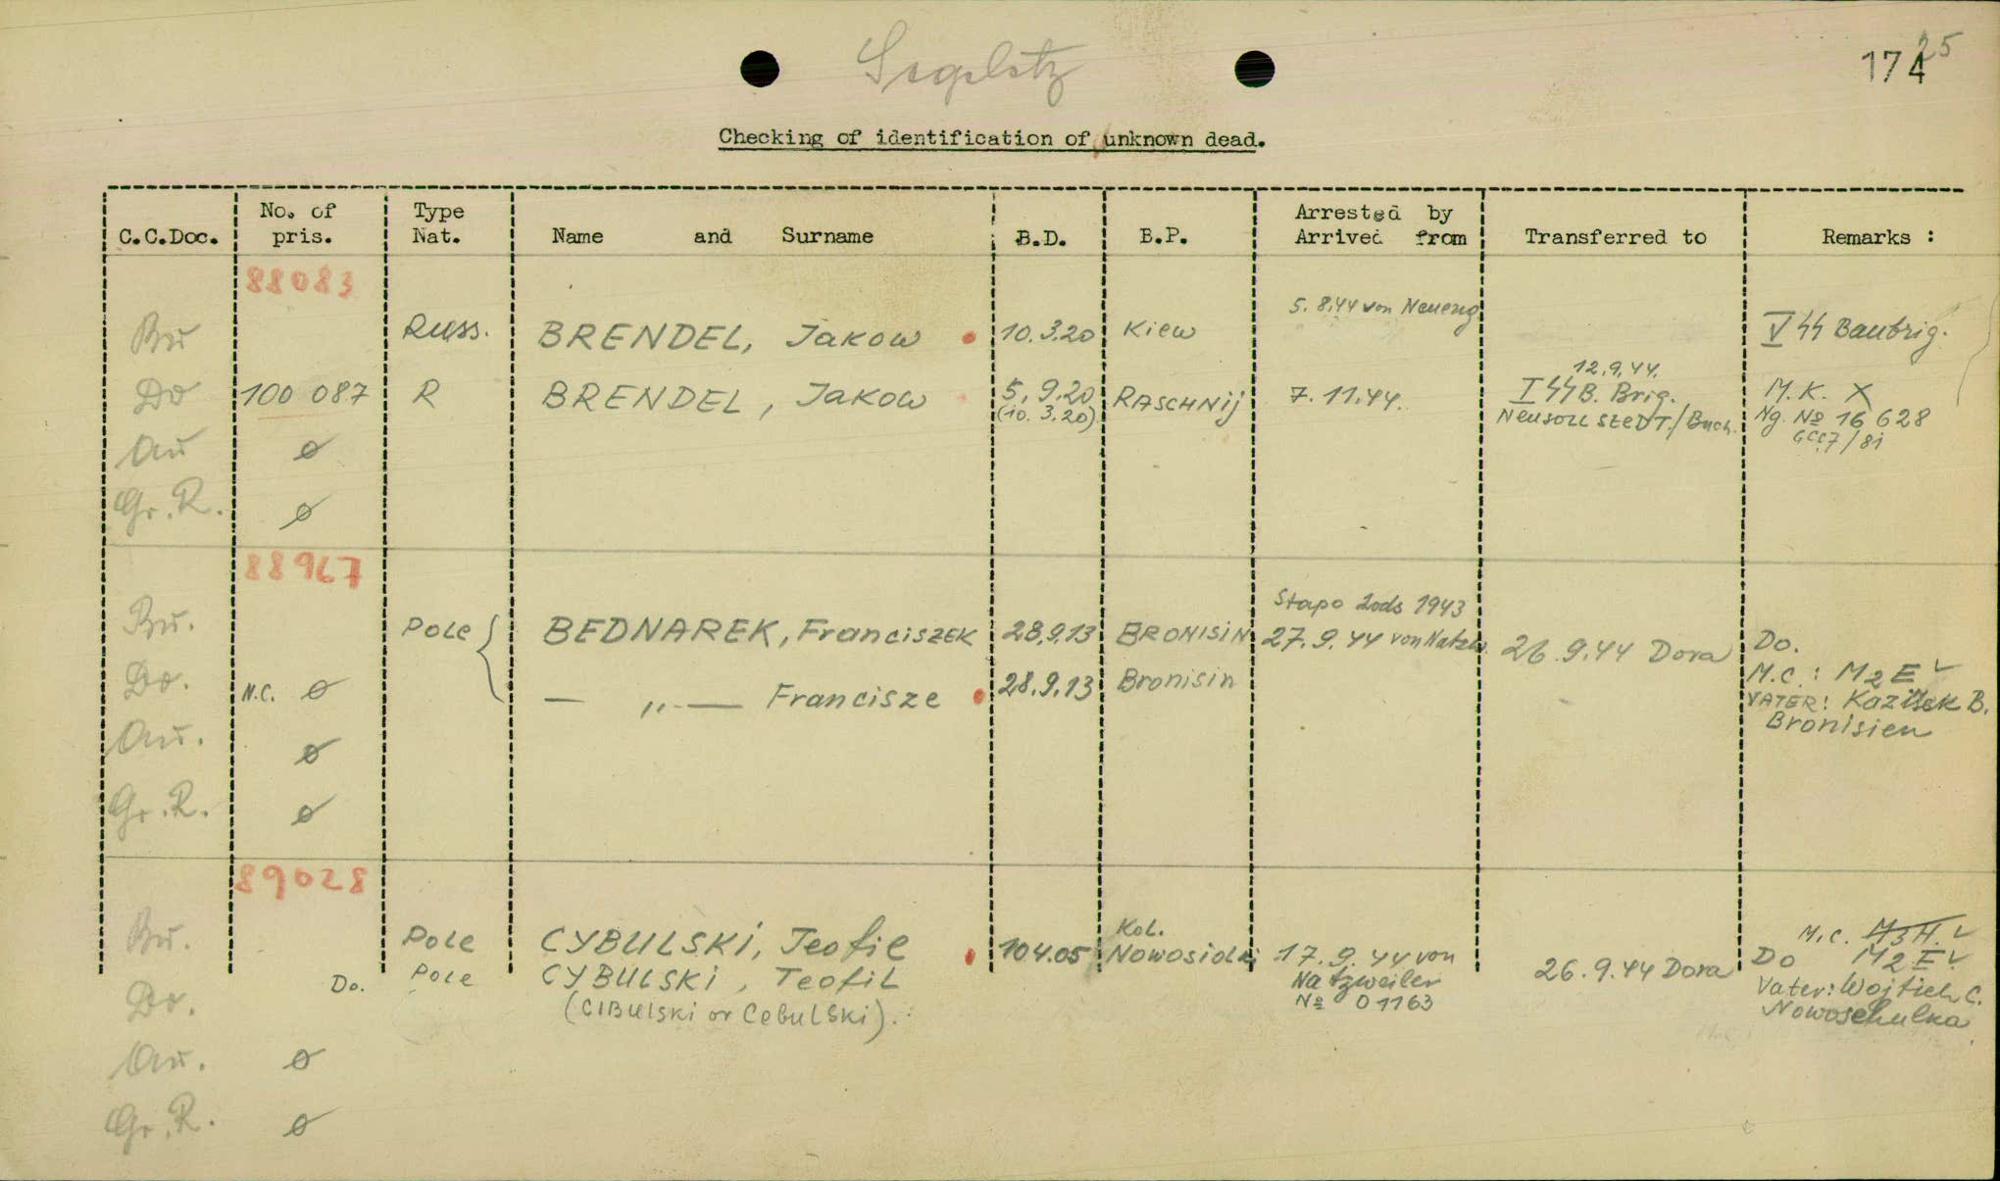 Seglitz
174 25
Checking of identification of unknown dead.
C.C.Doc. No. of pris. Type Nat. Name and Surname B.D. B.P. Arrested by Arrived from Transferred to Remarks :
88083
5. 8.44 von Neueng
Bu Russ. BRENDEL, Jakow 10.3.20 Kiew V SS Baubrig.
12.9.44.
Do 100 087 R BRENDEL, Jakow 5.9.20 RASCHNij 7.11.44. I SS B. Brig. M.K. X
(10.3.20) Neusollstedt/Buch. Ng. № 16 628
GCC7/81
Au ø
Gr.R. ø
88967
Stapo Lods 1943
Bu. Pole BEDNAREK, Franciszek 28.9.13 BRONISIN 27.9.44 von Natzw. 26.9.44 Dora Do.
Do. N.C. ø — " — Francisze 28.9.13 Bronisin M.C.: M2E
VATER: Kazisek B.
Bronisien
Au. ø
Gr.R. ø
89028
Kol. M.C. M3H.
Bu. Pole CYBULSKi, Teofie 10.4.05 Nowosiolki 17.9.44 von 26.9.44 Dora Do M2E
Do. Do. Pole CYBULSKi, Teofil Natzweiler Vater: Wojtich C.
(CIBULSKi or CebulSki). № 01163 Nowosehulka
Au. ø
Gr.R. ø